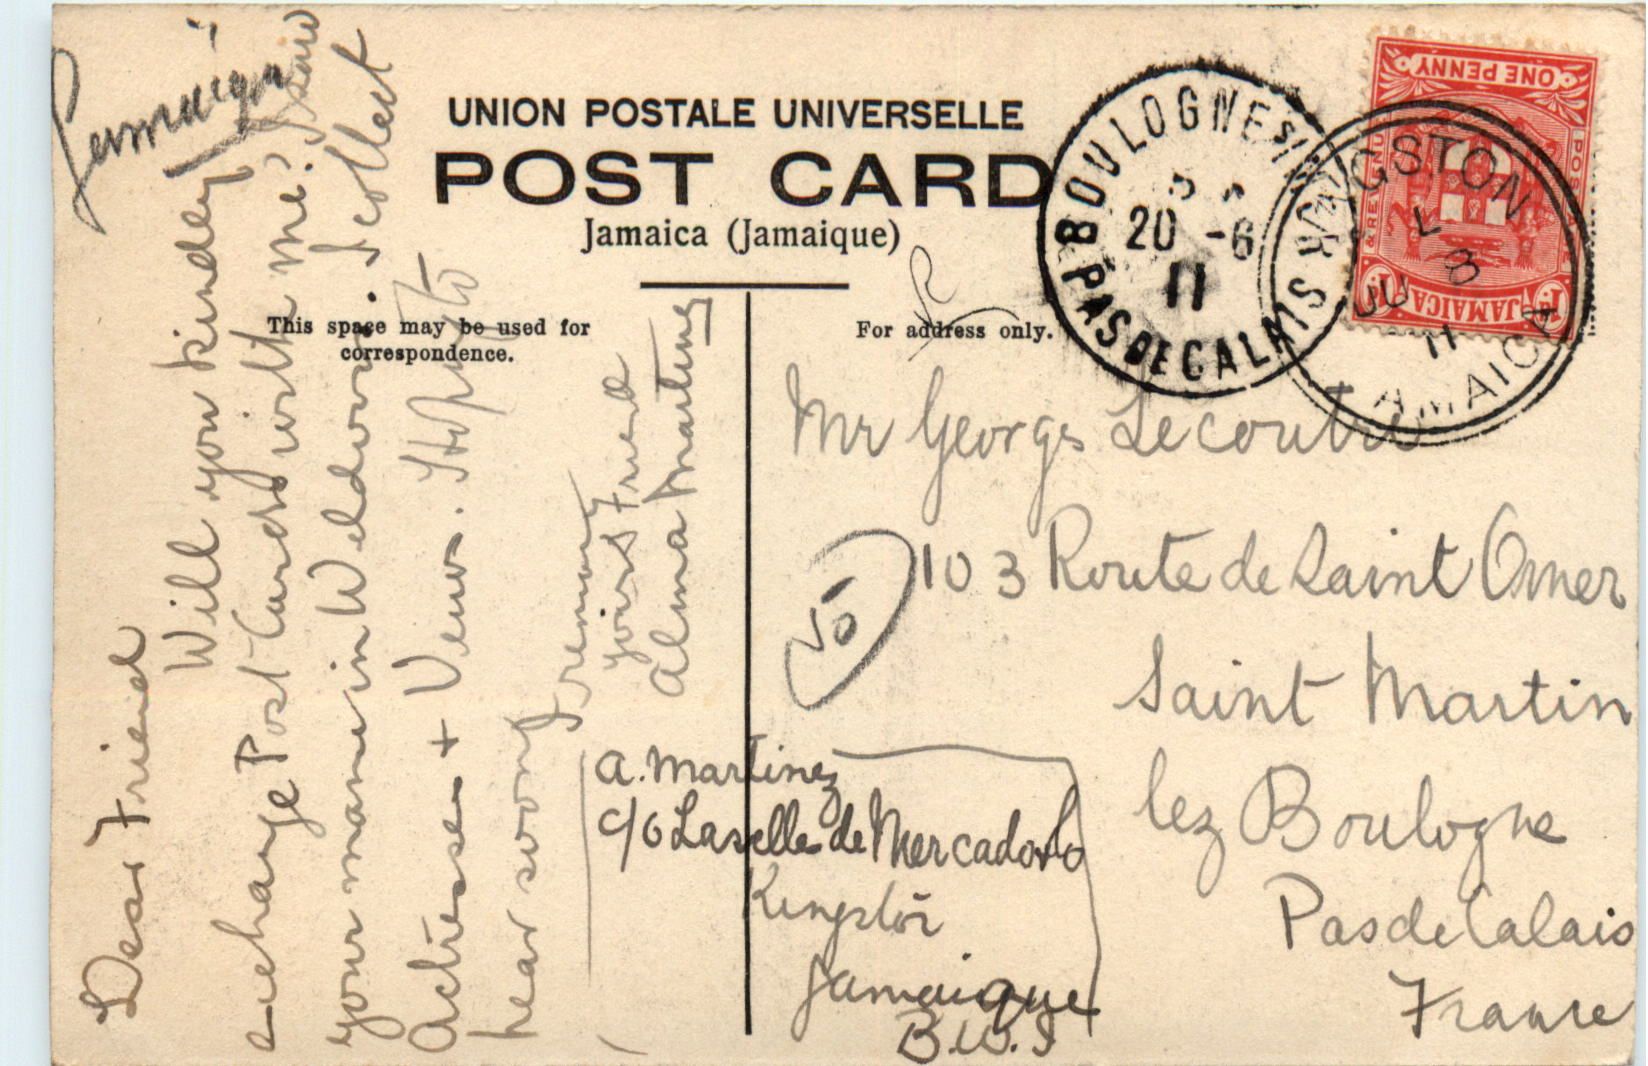 Jamaique
UNION POSTALE UNIVERSELLE
POST CARD
Jamaica (Jamaique)
This space may be used for
correspondence.
For address only.
Dear Friend
Will you kindly
exchange Post Cards with me? I saw
your name in Weldown. I collect
Actresses + Views. Hope to
hear soon
I remain
yours Friend
Alma Martinez
A. Martinez
c/o Lascelles de Mercado & Co
Kingston
Jamaique
B.W.I
Mr Georges Lecoutre
103 Route de Saint Omer
Saint Martin
lez Boulogne
Pas de Calais
France
BOULOGNE S/
20 -6
11
PAS DE CALAIS
KINGSTON
JU 8
11
JAMAICA
ONE PENNY
JAMAICA